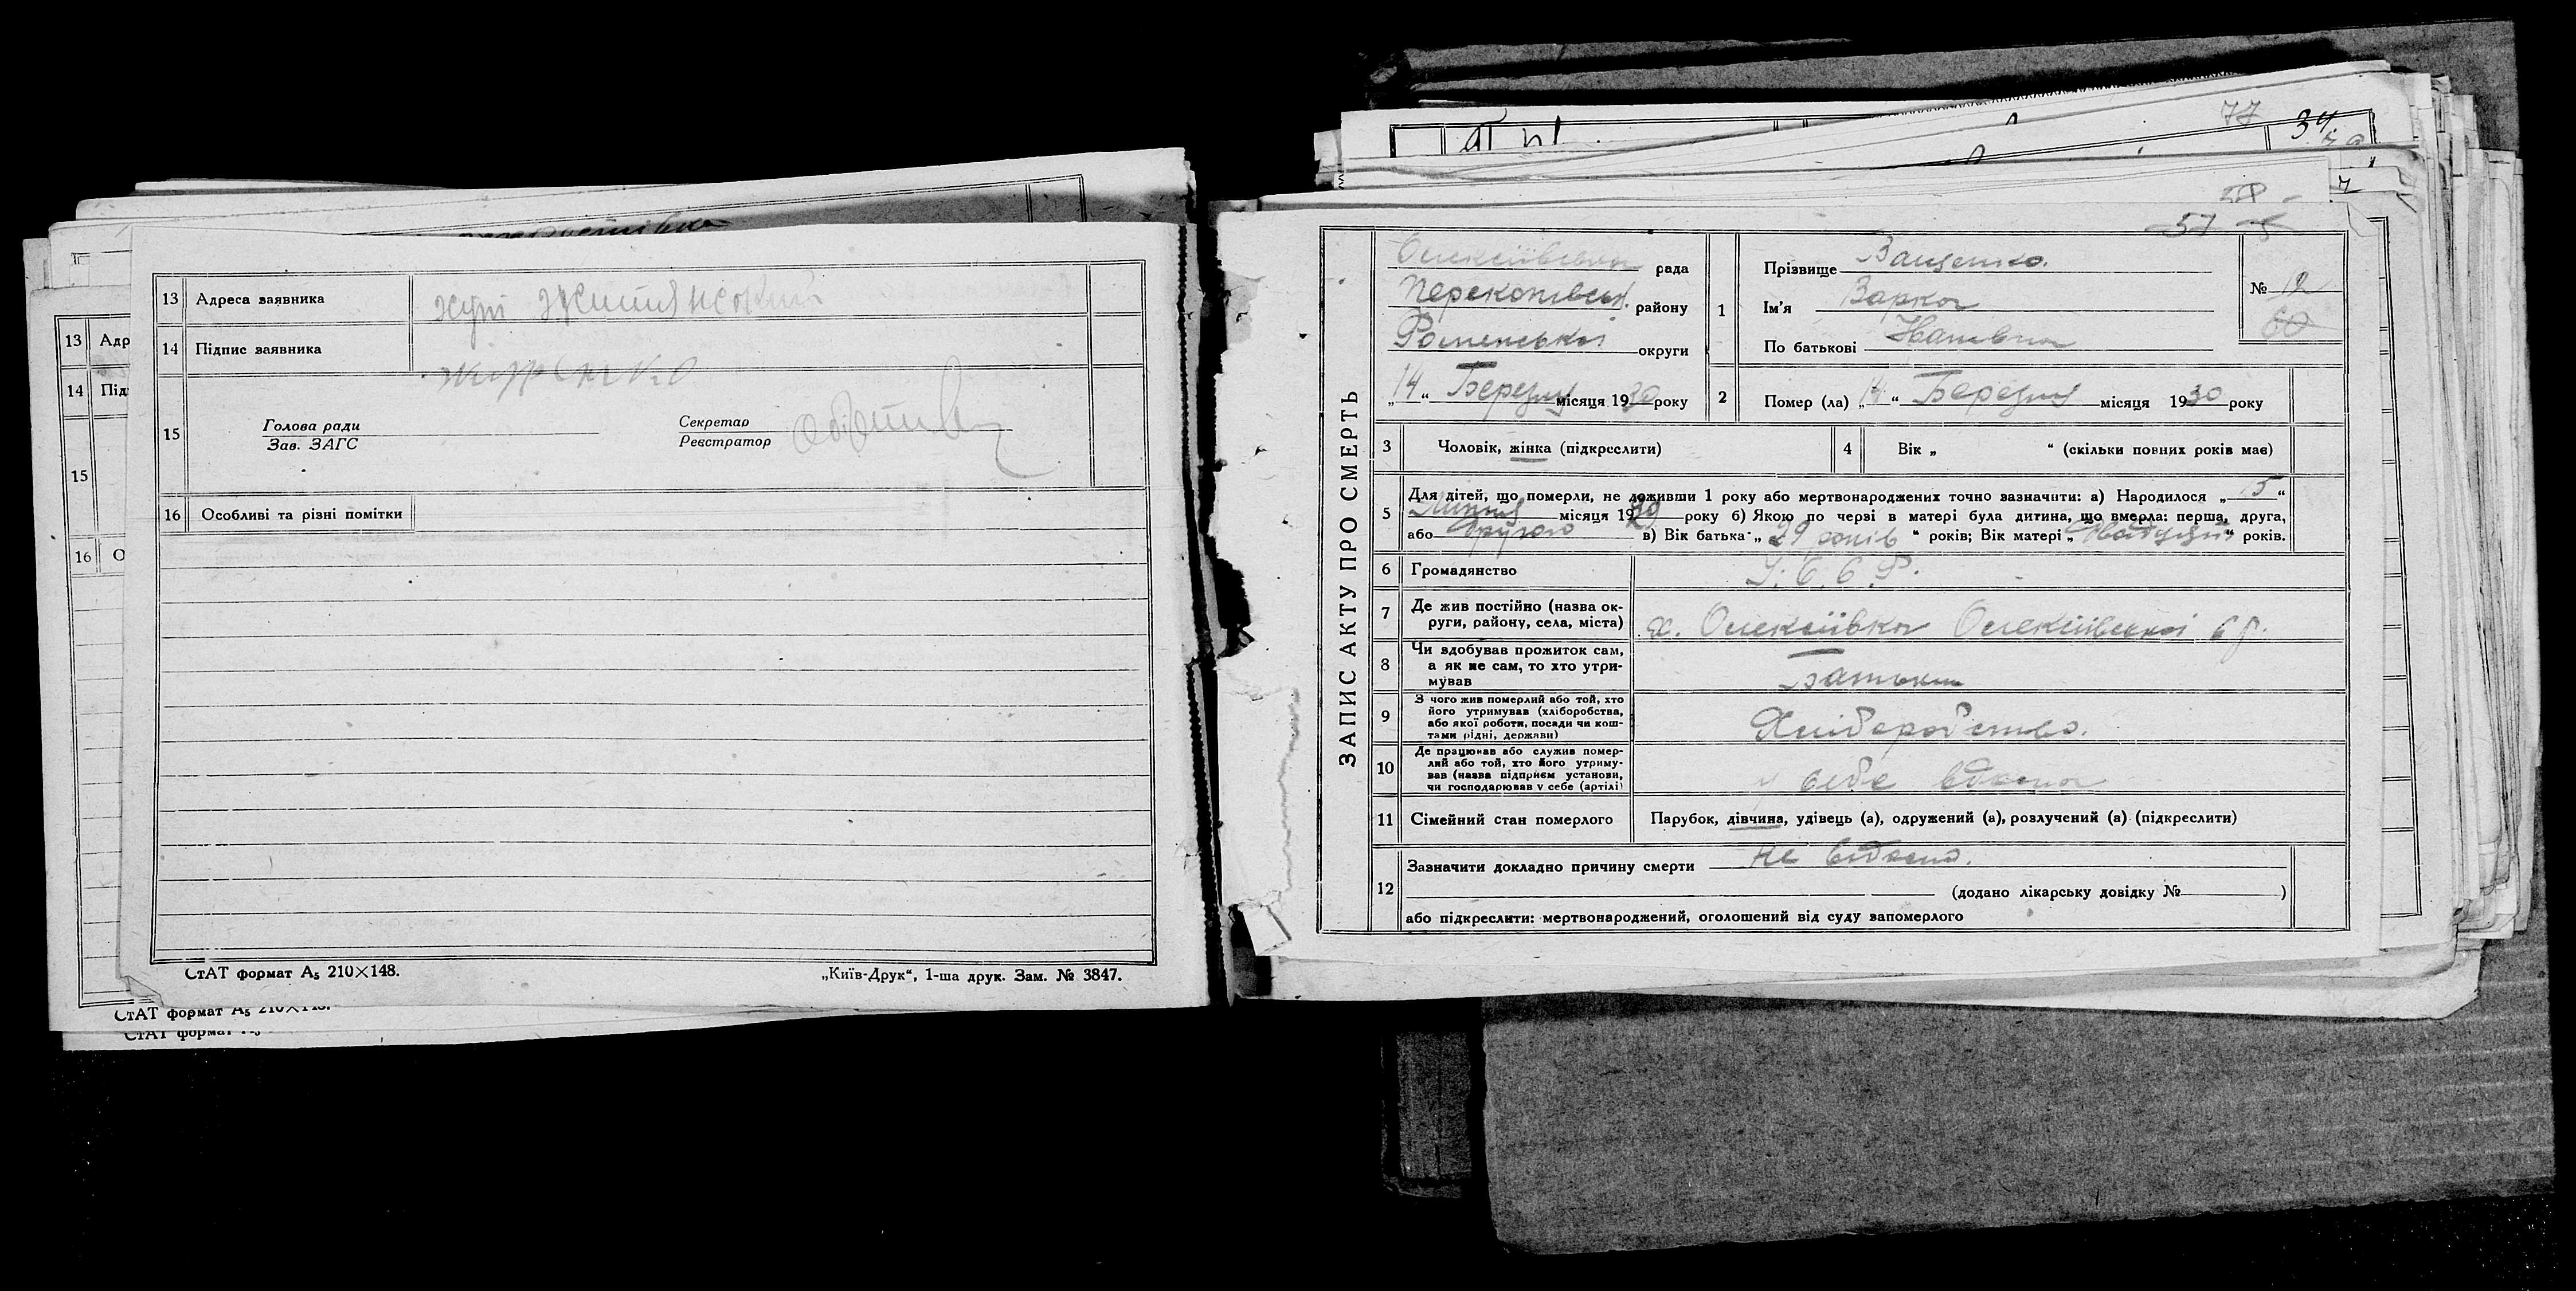 13 Адреса заявника
14 Підпис заявника
15 Голова ради
Зав. ЗАГС
Секретар
Реєстратор
16 Особливі та різні помітки
СтАТ формат А₅ 210×148.
„Київ-Друк“, 1-ша друк. Зам. № 3847.
13 Адр
14 Під
15
16 О
СтАТ формат А₅ 210×148.
СтАТ формат А₅
77 34
57
ЗАПИС АКТУ ПРО СМЕРТЬ
Олексіївська рада
Перекопівськ. району
Роменської округи
„14“ Березня місяця 1930 року
1 Прізвище Ващенко.
Ім’я Варка
По батькові
№ 12
60
2 Помер (ла) „14“ Березня місяця 1930 року
3 Чоловік, жінка (підкреслити)
4 Вік „ “ (скільки повних років має)
5 Для дітей, що померли, не доживши 1 року або мертвонароджених точно зазначити: а) Народилося „15“
Липня місяця 1929 року б) Якою по черзі в матері була дитина, що вмерла: перша, друга,
або другою в) Вік батька „29 років“ років; Вік матері „ “ років.
6 Громадянство У.С.С.Р.
7 Де жив постійно (назва ок-
руги, району, села, міста) х. Олексіївка Олексіївської с/р.
8 Чи здобував прожиток сам,
а як не сам, то хто утри-
мував Батьки
9 З чого жив померлий або той, хто
його утримував (хліборобства,
або якої роботи, посади чи кош-
тами рідні, держави) Хліборобство.
10 Де працював або служив помер-
лий або той, хто його утриму-
вав (назва підприєм установи,
чи господарював у себе (артілі) у себе вдома
11 Сімейний стан померлого Парубок, дівчина, удівець (а), одружений (а), розлучений (а) (підкреслити)
12 Зазначити докладно причину смерти не відомо.
(додано лікарську довідку № )
або підкреслити: мертвонароджений, оголошений від суду запомерлого